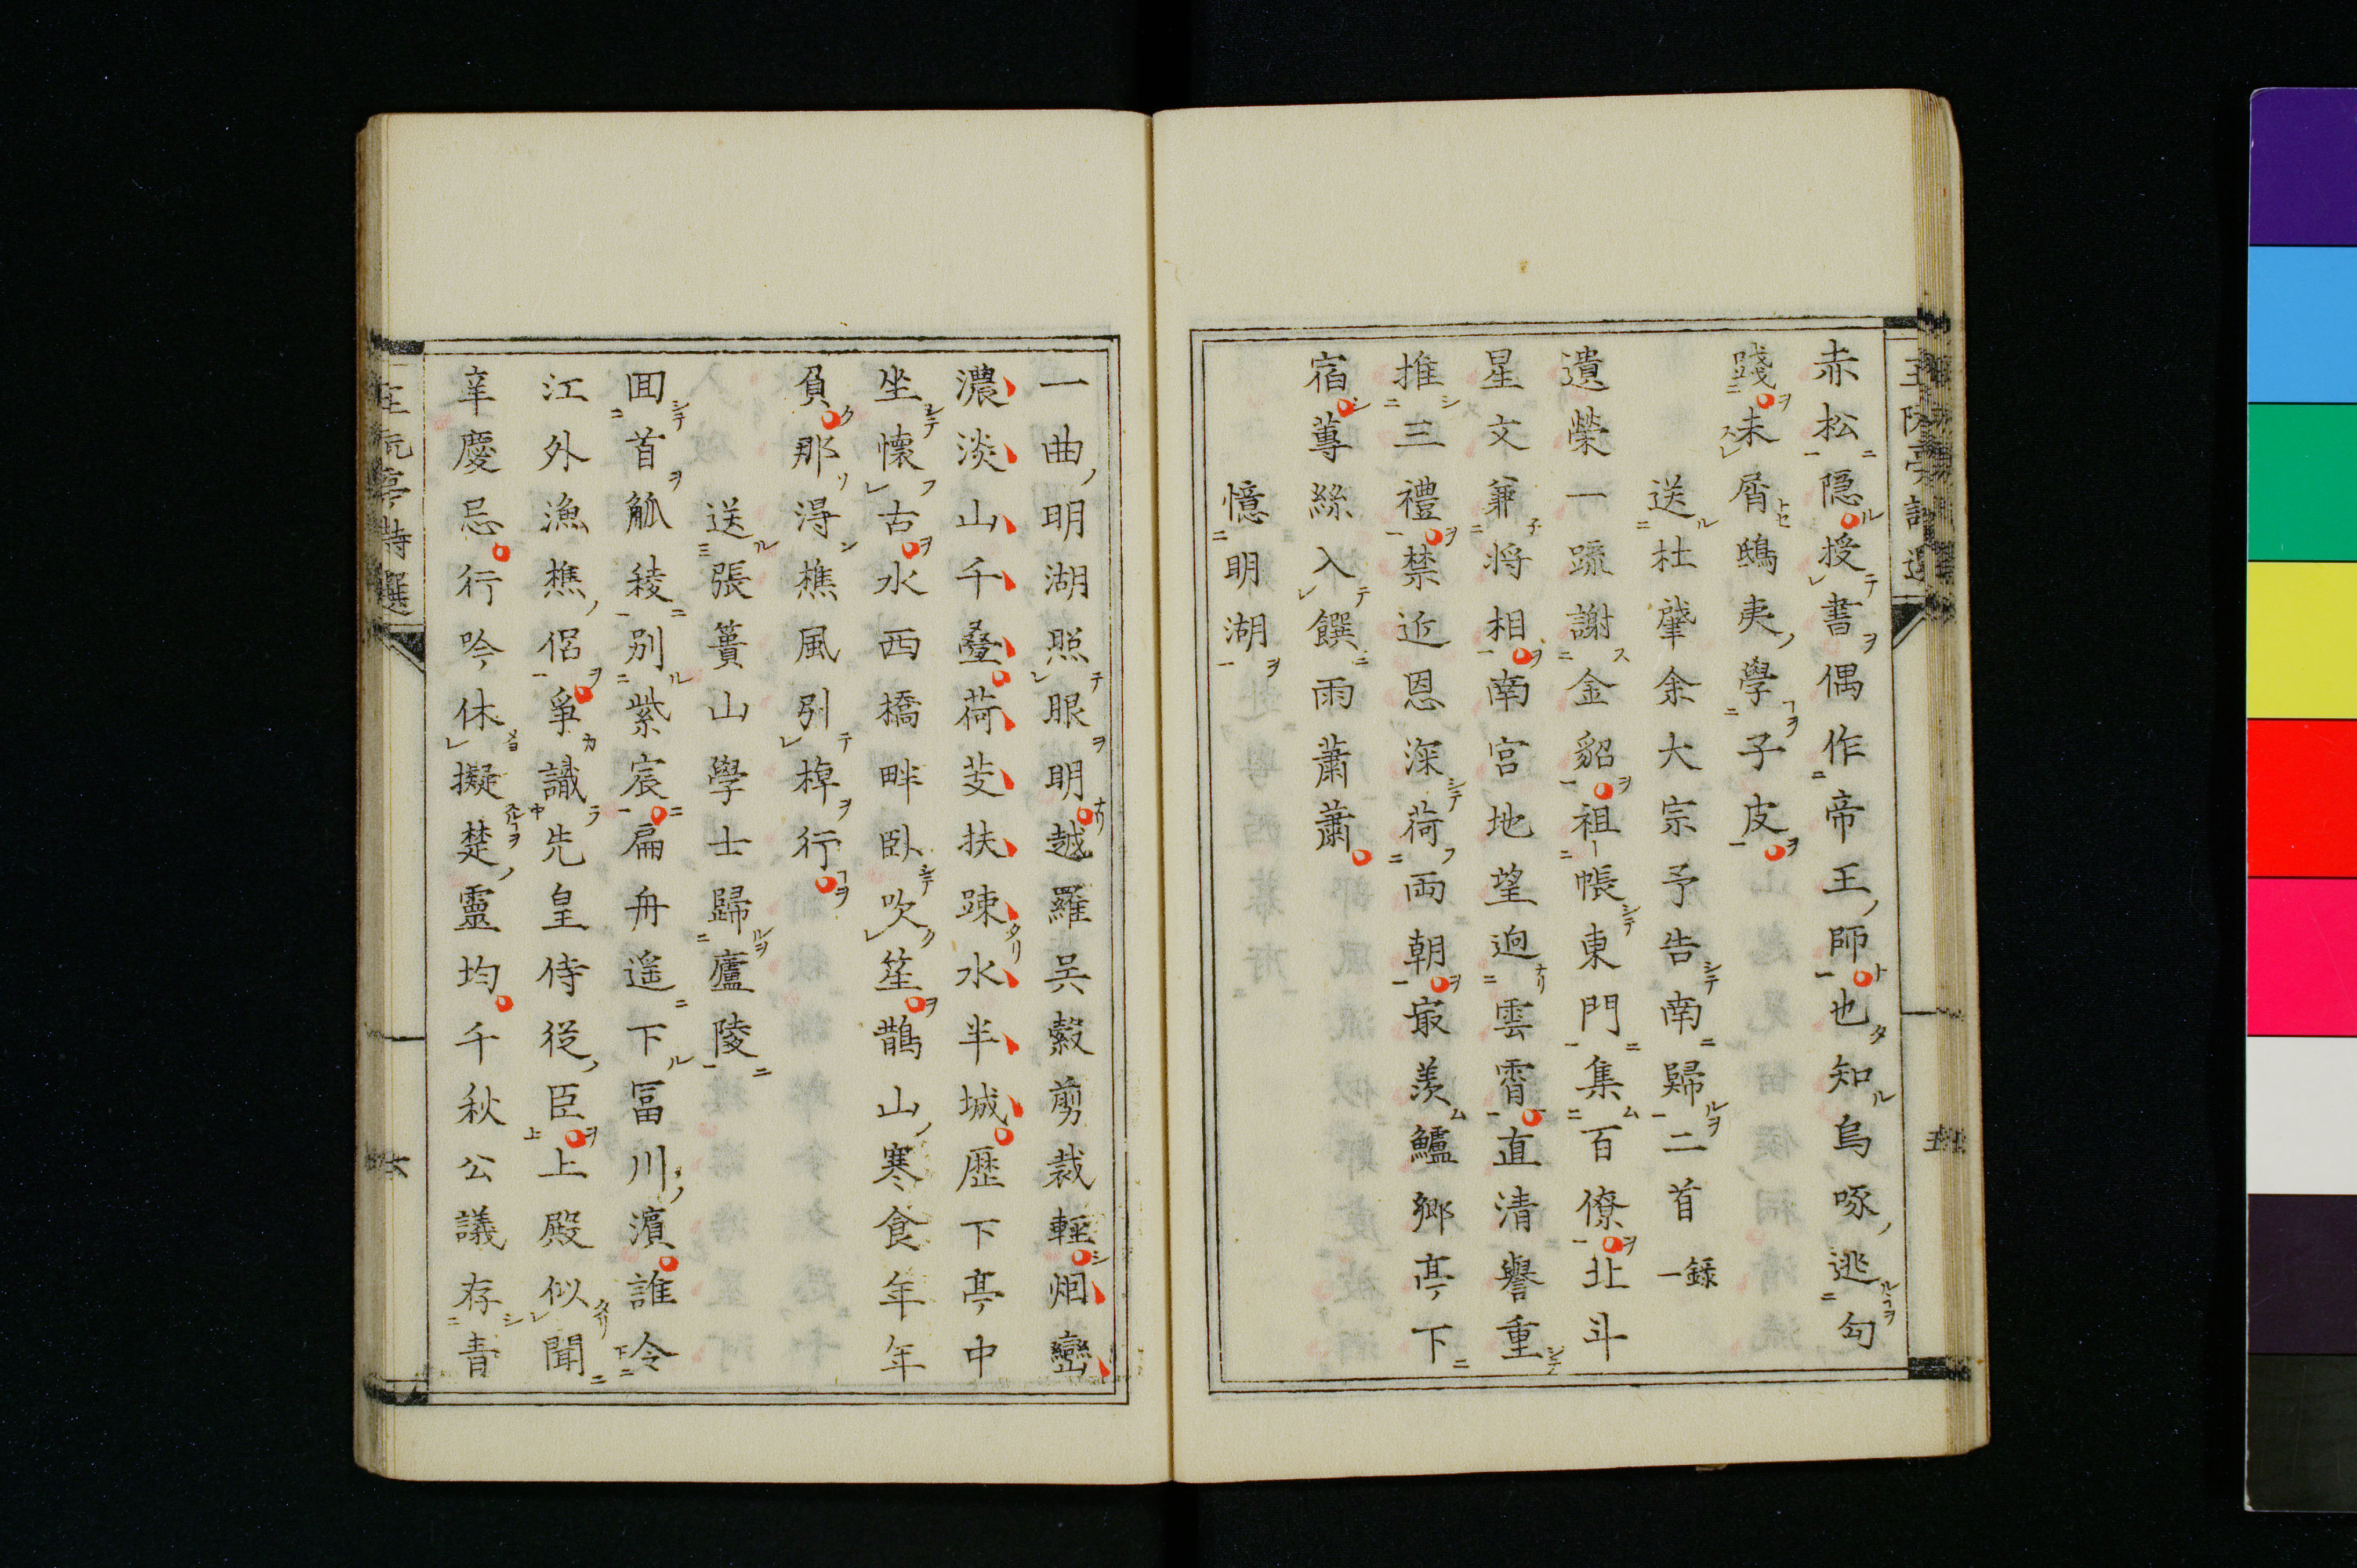 赤松隠授書偶作帝王師也知烏啄逃勾
踐未屑鴟夷學子皮
送杜肇余大宗予告南歸二首 錄一
遺榮一疏謝金貂祖帳東門集百僚北斗
星文兼將相南宮地望逈雲霄直清譽重
推三禮禁近恩深荷兩朝最羨鱸鄉亭下
宿蓴絲入饌雨蕭蕭
憶明湖
一曲明湖照眼明越羅吳縠剪裁輕烟巒
濃淡山千疊荷芰扶踈水半城歷下亭中
坐懷古水西橋畔臥吹笙鵲山寒食年年
負那得樵風引棹行
送張簣山學士歸廬陵
囬首觚稜別紫宸扁舟遥下富川濵誰令
江外漁樵侶爭識先皇侍從臣上殿似聞
辛慶忌行吟休擬楚靈均千秋公議存青
王阮亭詩選
五
王阮亭詩選
六